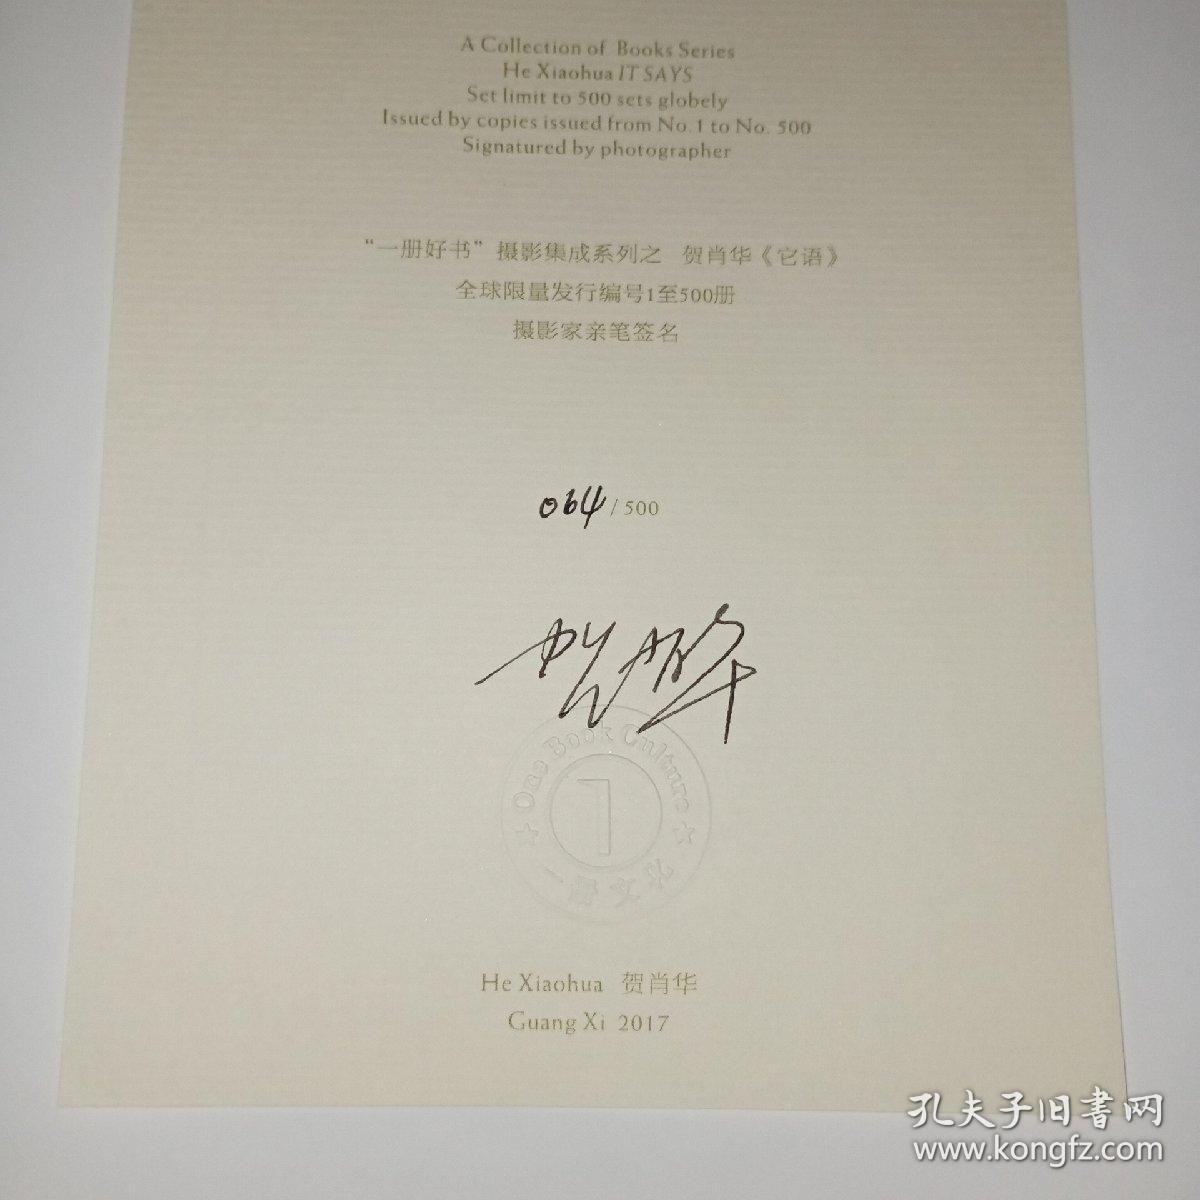 A Collection of Books Series
He Xiaohua IT SAYS
Set limit to 500 sets globely
Issued by copies issued from No.1 to No. 500
Signatured by photographer
“一册好书”摄影集成系列之 贺肖华《它语》
全球限量发行编号1至500册
摄影家亲笔签名
064 / 500
贺肖华
One Book Culture
1
一册文化
He Xiaohua 贺肖华
Guang Xi 2017
孔夫子旧書网
www.kongfz.com